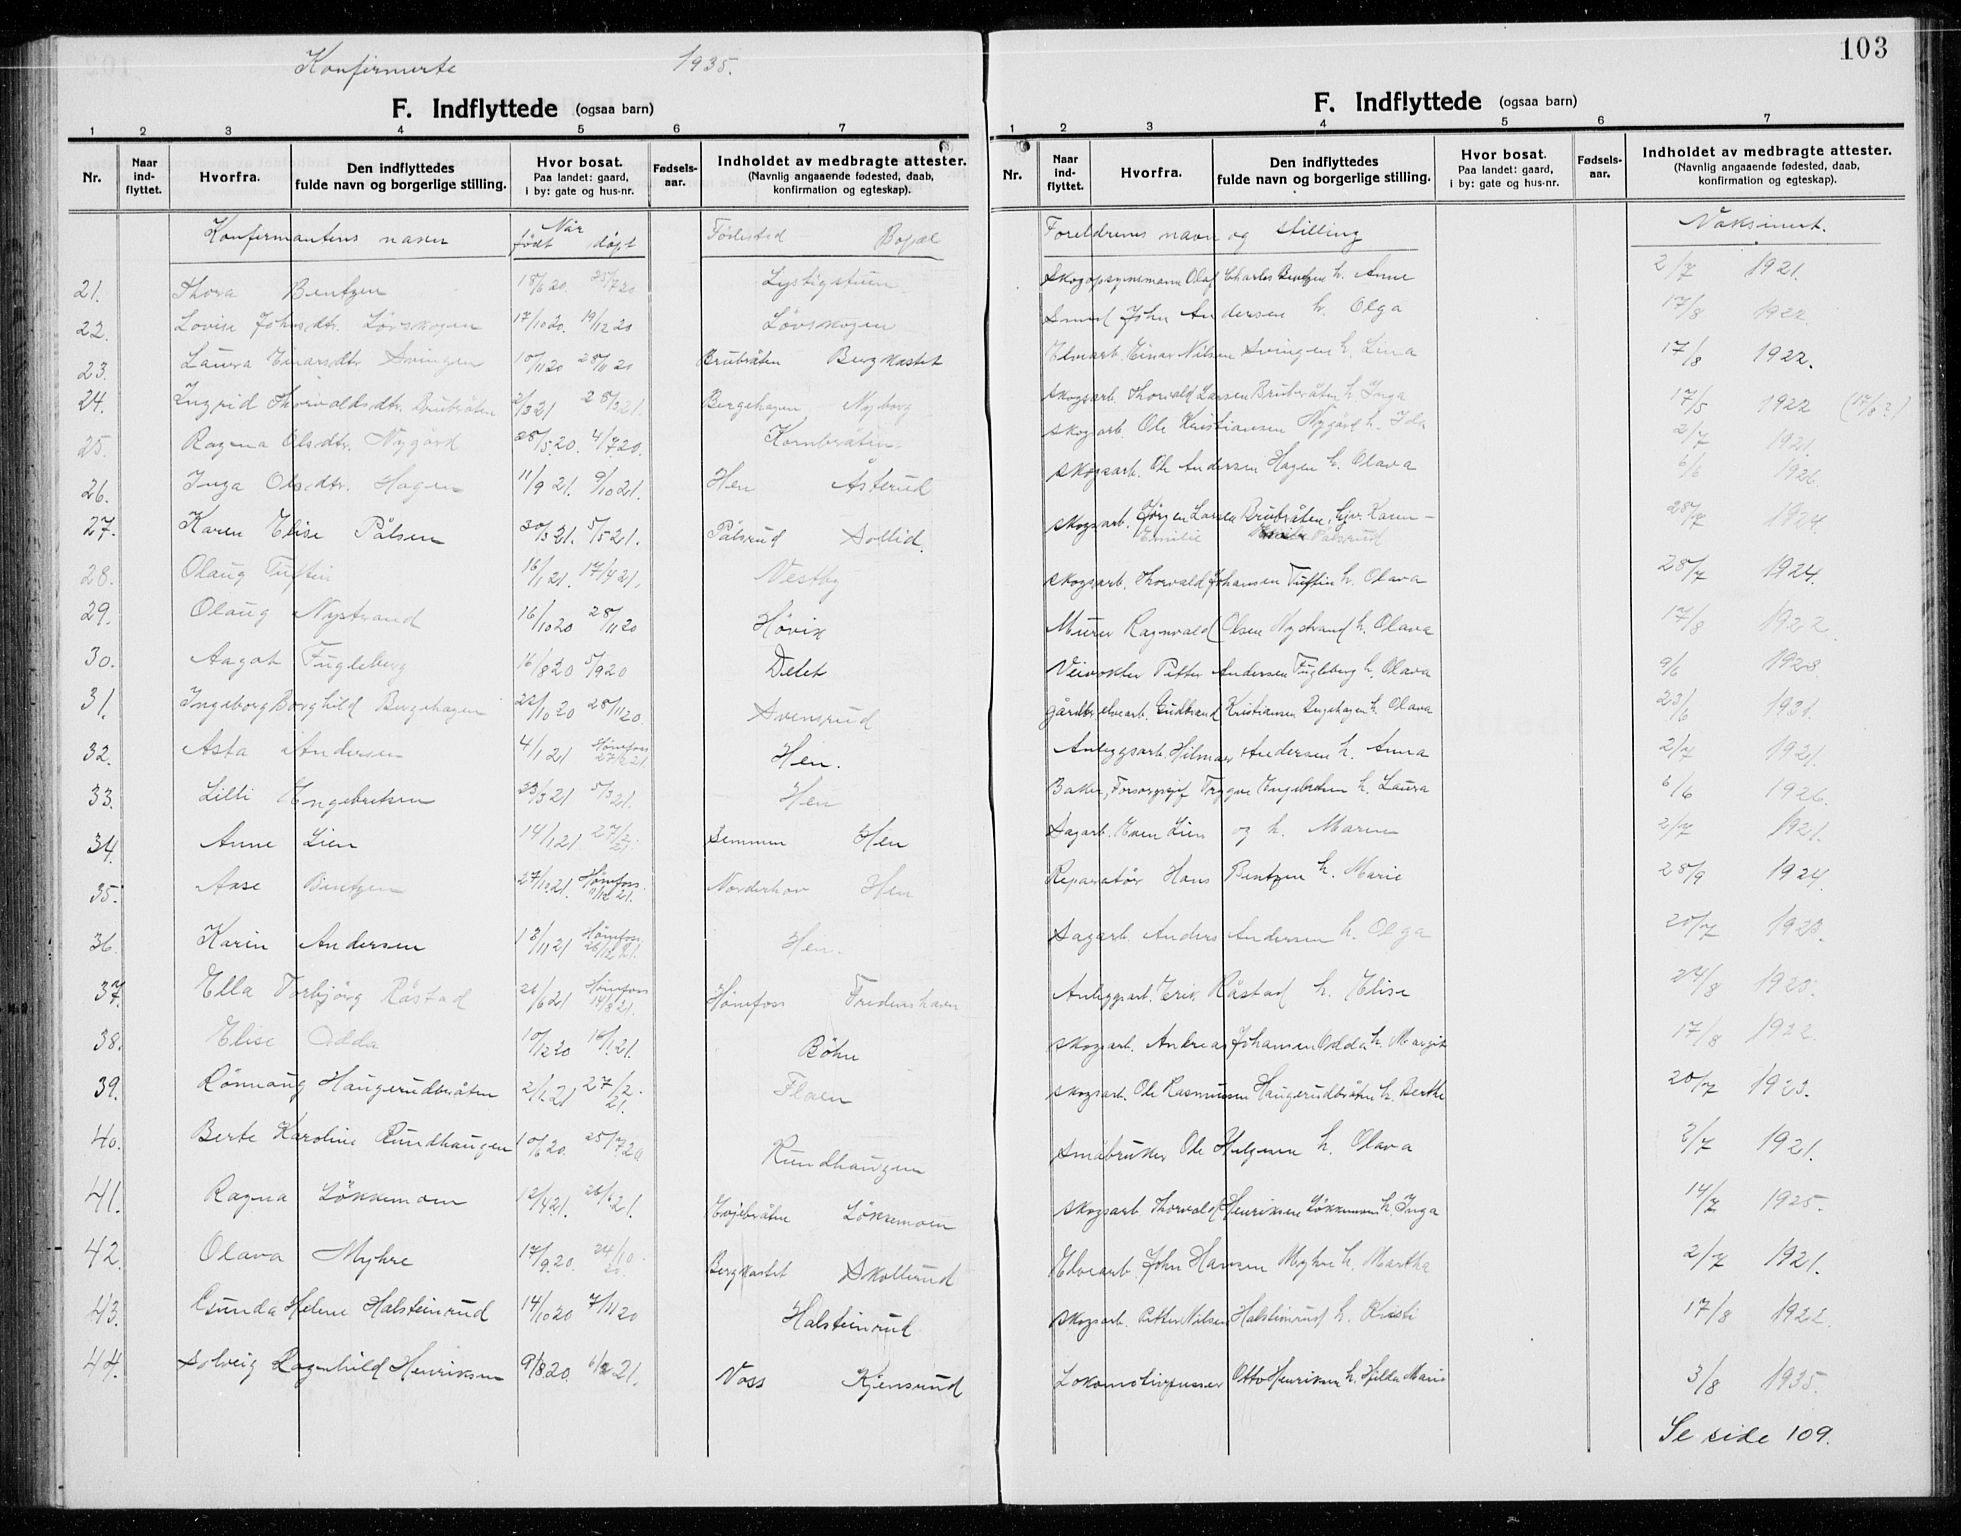 103
Konfirmerte 1935.
F. Indflyttede (ogsaa barn)
1 2 3 4 5 6 7
Nr. Naar ind- flyttet. Hvorfra. Den indflyttedes fulde navn og borgerlige stilling. Hvor bosat. Paa landet: gaard, i by: gate og hus-nr. Fødsels- aar. Indholdet av medbragte attester. (Navnlig angaaende fødested, daab, konfirmation og egteskap).
Konfirmantens navn Når født døpt Fødested Bopæl
21. Thora Bentzen 18/6 20. 25/7 20 Lystigstuen
22. Lovise Johnsdtr. Lövskogen 17/10 20. 19/12 20 Lövskogen
23. Laura Einarsdtr Svingen 10/11 20 28/11 20 Brubråten Bergkastet
24. Ingrid Thorvaldsdtr. Brubråten 2/3 21 28/3 21. Bergehagen Nyborg
25. Ragna Olsdtr. Nygård 28/5 20. 4/7 20. Kornbråten
26. Inga Olsdtr. Hagen 11/9 21. 9/10 21. Hen Åsterud
27. Karen Elise Pålsen 30/3 21. 5/5 21. Pålsrud Sollid.
28. Olaug Tuftin 16/1 21. 17/4 21. Vestby
29. Olaug Nystrand 16/10 20 28/11 20 Hövik
30. Aagot Fugleberg 16/8 20 5/9 20 Delet
31. Ingeborg Borghild Bergehagen 22/10 20 28/11 20. Svensrud
32. Asta Andersen 4/1 21 Hönefoss 27/2 21 Hen.
33. Lilli Engebretsen 23/3 21 5/3 21. Hen
34. Anne Lien 14/1 21 27/2 21. Semmen Hen
35. Aase Bentzen 27/10 21. Hönefoss. 11/12 21. Norderhov Hen
36. Karin Andersen 13/11 21 Hönefoss 26/12 21. Hen.
37. Ella Torbjörg Råstad 26/6 21 Hönefoss 14/8 21. Hönefoss Fredenshavn
38. Elise Odda 10/12 20 16/1 21. Böhn
39. Rönnaug Haugerudbråten 2/1 21 27/2. 21. Flaen
40. Berte Karoline Rundhaugen 10/6 20. 25/7 20 Rundhaugen
41. Ragna Lökkemoen 12/4 21. 26/6 21. Hvjebråten Lökkemoen
42. Olava Myhre 17/9 20. 24/10. 20. Bergkastet Skollerud
43. Gunda Helene Halsteinrud 14/10 20 7/11 20 Halsteinrud
44. Solveig Ragnhild Henriksen 9/8 20. 6/2 21. Voss Kjensrud
F. Indflyttede (ogsaa barn)
1 2 3 4 5 6 7
Nr. Naar ind- flyttet. Hvorfra. Den indflyttedes fulde navn og borgerlige stilling. Hvor bosat. Paa landet: gaard, i by: gate og hus-nr. Fødsels- aar. Indholdet av medbragte attester. (Navnlig angaaende fødested, daab, konfirmation og egteskap).
Foreldrenes navn og stilling Vaksinert.
Skogopsynsmann Olaf Charles Bentzen h. Anne 2/7 1921.
Smed John Andersen h. Olga 17/8 1922
Elvearb. Einar Nilsen Svingen h. Lina 17/8 1922.
Skogsarb. Thorvald Larsen Brubråten h. Inga 17/5 1922 (17/8?)
Skogarb. Ole Kristiansen Nygård h. Ida 2/7 1921.
Skogsarb. Ole Andersen Hagen h. Olava 6/6 1926.
Skogsarb. Jörgen Larsen Brubråten, hjv. Karen Emilie Pålsrud 28/7 1924
Skogsarb. Thorvald Johansen Tuftin h. Olava 28/7 1924.
Murer Ragnvald Olsen Nystrand h. Olava 17/8 1922.
Veivokter Petter Andersen Fugleberg h. Olava 9/6 1928
gårdbr. elvearb. Gudbrand Kristiansen Bergehagen h. Olava 23/6 1931.
Anleggsarb. Hilmar Andersen h. Anna 2/7 1921.
Baker, Trygve Engebretsen h. Laura 6/6 1926.
Sagarb. Even Lien og h. Maren 2/7 1921.
Reparatör Hans Bentzen h. Marie 28/9 1924.
Sagarb. Anders Andersen h. Olga 20/7 1923.
Anleggsarb. Erik Råstad h. Elise 24/8 1923.
Skogsarb. Andreas Johansen Odda h. Margit 17/8 1922.
Skogsarb. Ole Rasmussen Haugerudbråten h. Berthe 20/7 1923.
Småbruker Ole Helgesen h. Olava 2/7 1921.
Skogsarb Thorvald Henriksen Lökkemoen h. Inga 14/7 1925.
Elvearb. John Hansen Myhre h. Martha 2/7 1921.
Skogsarb. Petter Nilsen Halsteinrud h. Kristi 17/8 1922.
Lokomotivpusser Otto Henriksen h. Hilda Marie 3/8 1935.
Se side 109.